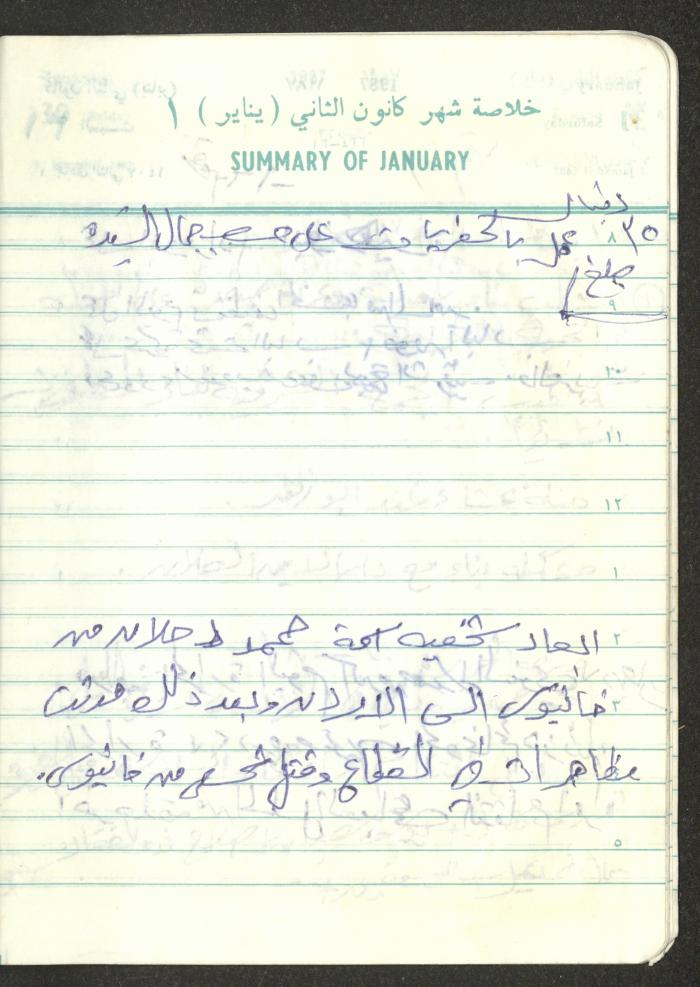 خلاصة شهر كانون الثاني ( يناير ) ١
SUMMARY OF JANUARY
دفتاي
٣٥ عمل بالحفريات على حسب جمال السيده
٨
مبلغ
٩
١٠
١١
١٢
١
٢ ابعاد شخصيه اسمة محمد دحلان من
٣ خانيونس الى الاردن وبعد ذلك حدثت
مظاهرات في القطاع وقتل شخص من خانيونس.
٥